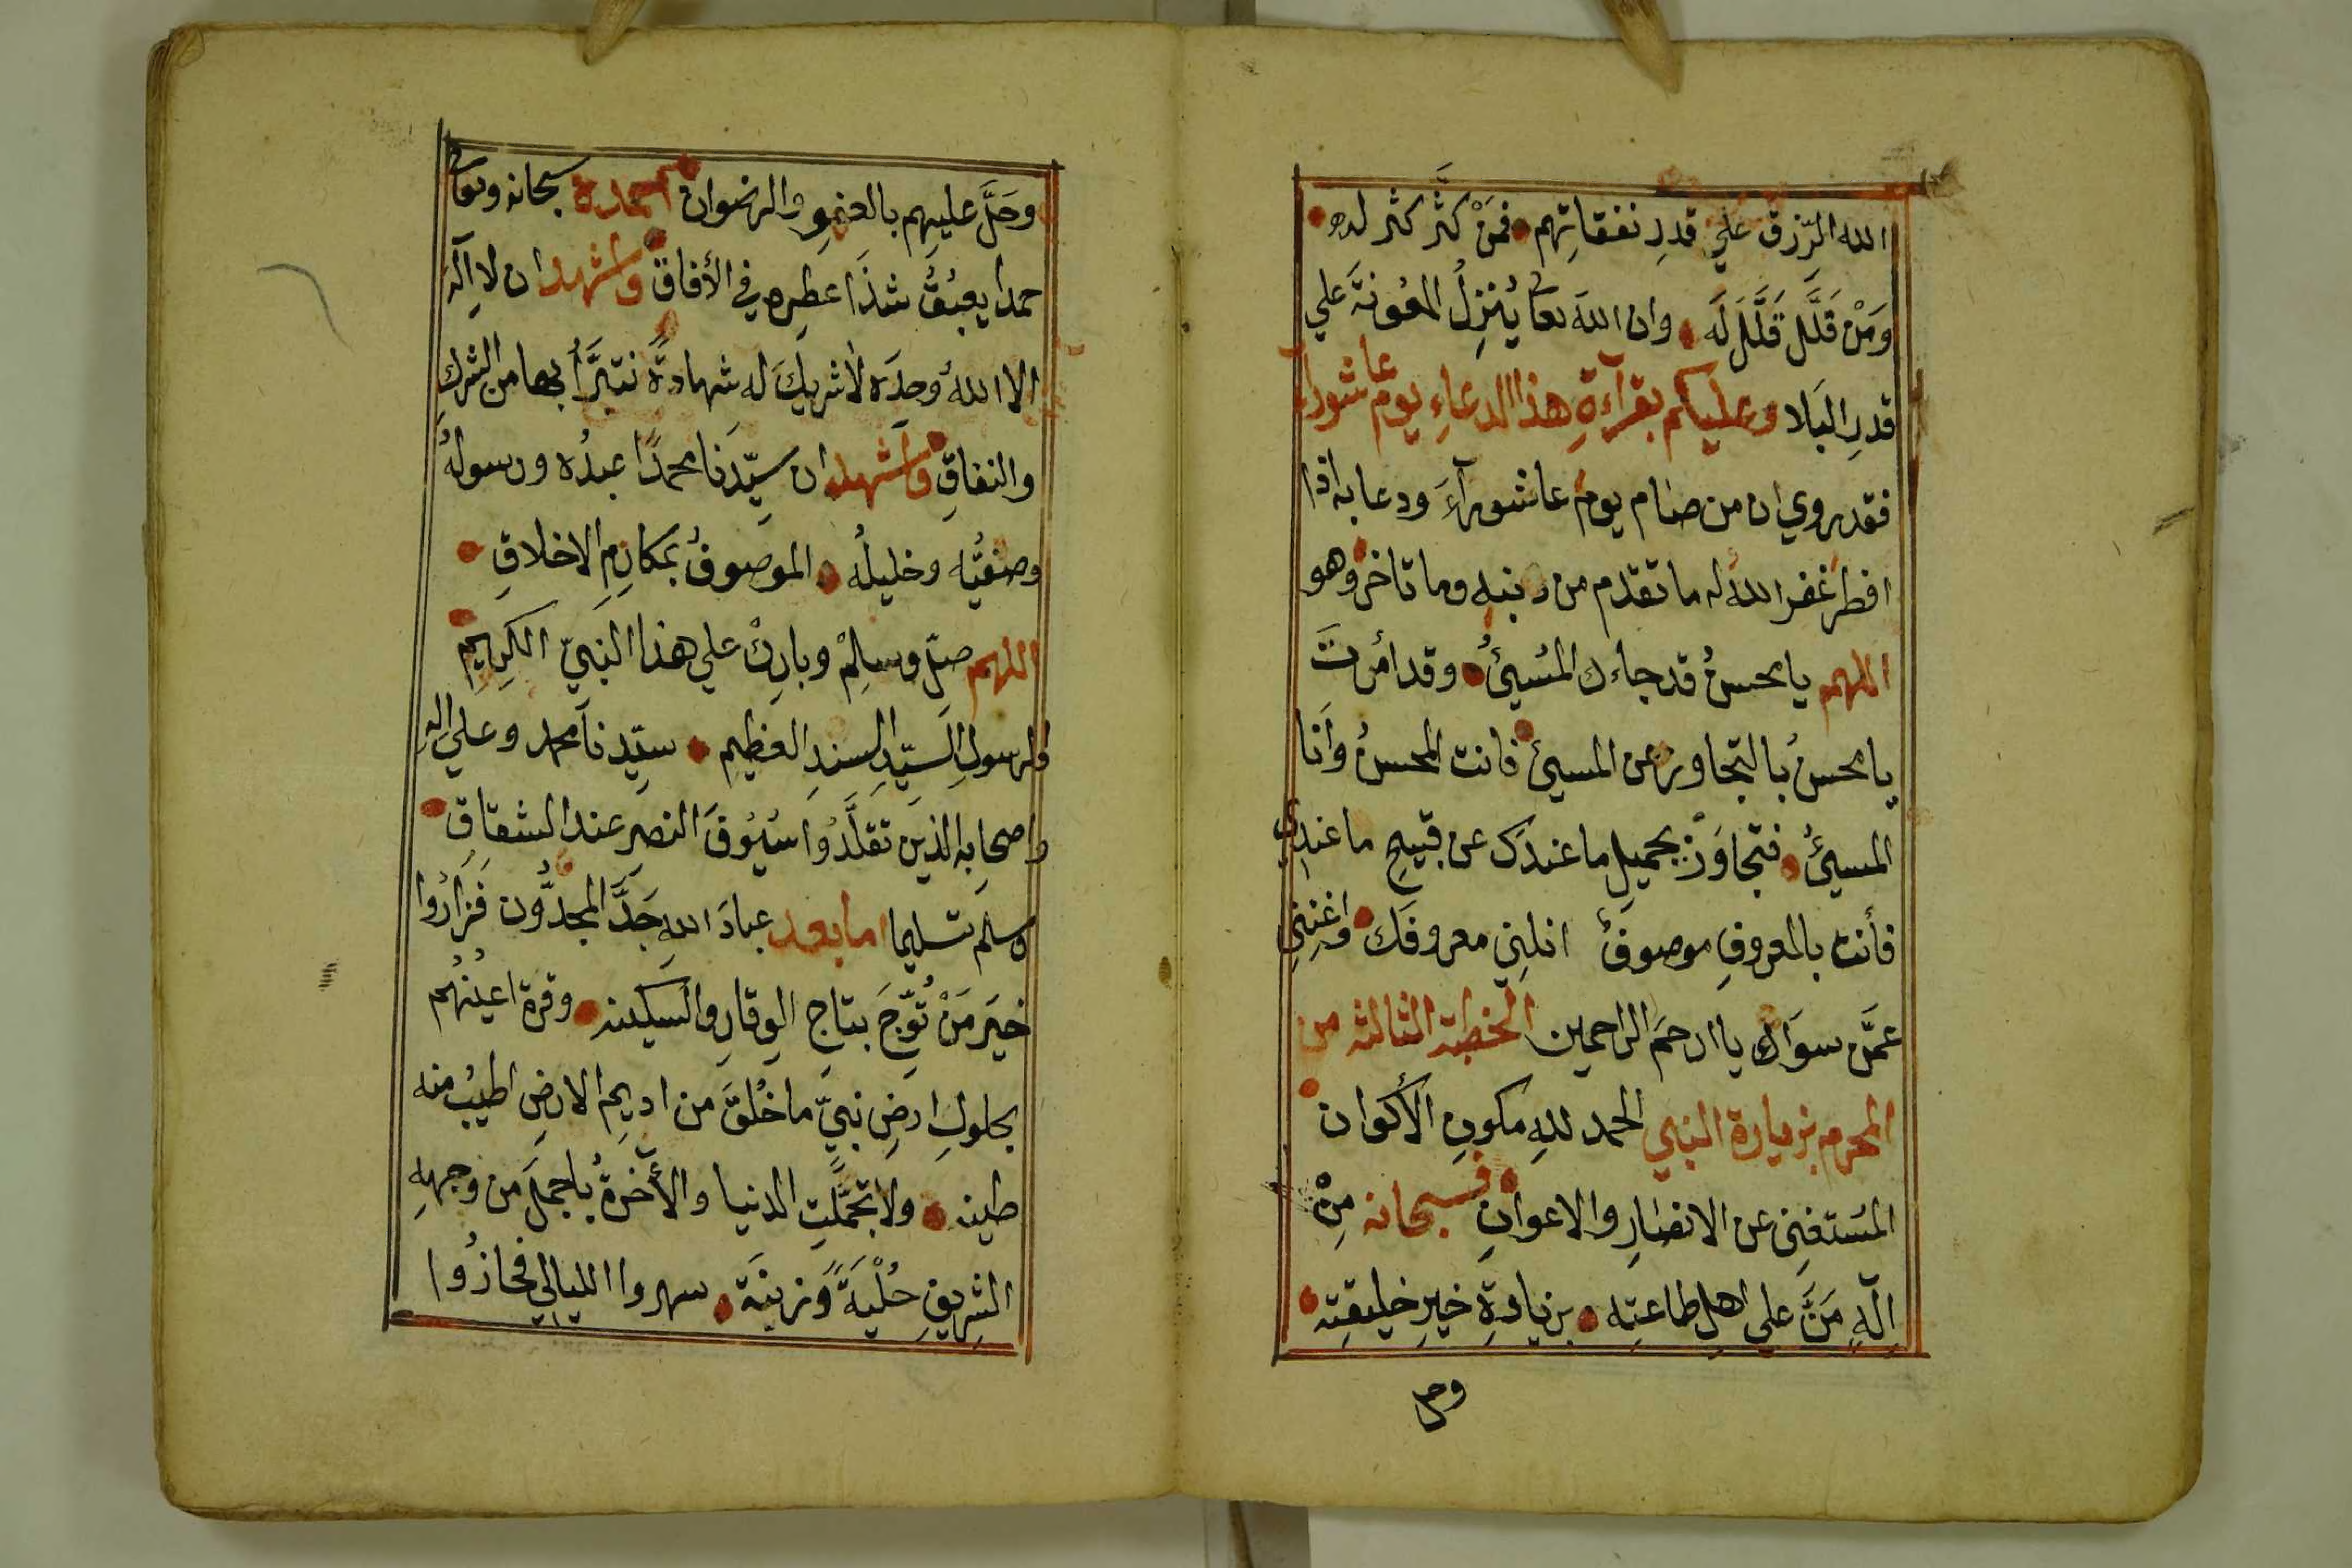 الله الرِّزق علي قدرِ نفقاتِهم فَمَنْ كَثَّر كثر له
وَمَنْ قَلَّل قَلَّلَ لَه وان الله تعا يُنزِلُ المعُونَة علي
قدرِ البَلا وعليكم بقرآءةِ هذا الدعاءِ يوم عاشوراء
فقد روي ان من صام يوم عاشورآءَ ودعا به اذا
افطر غفر الله له ما تقدم من ذنبه وما تاخر وهو
اللهم يا محسنُ قد جاءك المُسيئُ وقد امُرتَ
يا محسنُ بالتجاوز عن المسيئ فانت المحسنُ وَانَا
المسيئُ فتجاوَزْ بجميلِ ما عندَك عن قبيحِ ما عندي
فأنت بالمعروفِ موصوفٌ انلِنِي معروفَك واغنِنِي
عمَّن سوَاك يا ارحَمَ الراحمين الخطبة الثالثه من
المحرم بزيارة النبي الحمد للهِ مكونِ الأكوان
المُستغنِي عن الانصَارِ والاعوانِ فسبحانه مِنْ
اِلَهٍ مَنَّ علي اهلِ طاعتِه بزيادةِ خيرِ خليقتِه
وحل
وحَلَّ عليهم بالعفوِ والرضوان احمده سبحانه وتعا
حمدا يعبُقُ شذَا عطِره في الأفاق واشهد ان لا اله
الا اللهُ وحدَه لا شريكَ له شهادةً نتبرَّأُ بها من الشركِ
والنفاقِ واشهد ان سيِّدَنَا محمدًا عبدُه ورسولُه
وصفيُّه وخليلُه الموصوفُ بمَكارِمِ الاخلاقِ
اللهم صلِّ وسلِمْ وبارِكْ علي هذا النبيّ الكرِيمِ
والرسولِ السيّدِ السندِ العظيم سيّدِنا محمد وعلي اله
واصحابِه الذينَ تقلَّدُوا سُيُوفَ النصرِ عند الشقاقِ
وسلم تسليما اما بعد عبادَ اللهِ جَدَّ المجدُّون فَزَارُوا
خيرَ مَنْ تُوِّجَ بتاجِ الوِقارِ والسكينه وقرة اعينُهُم
بحلولِ ارضِ نبيّ ما خُلقَ من اديمِ الارضِ اطيبُ منه
طينه ولا تجمَّلتِ الدنيا والأخرةُ باجملَ من وجههِ
الشريفِ حُلْيَةً وَزينَة سهروا الليالي فحازُوا